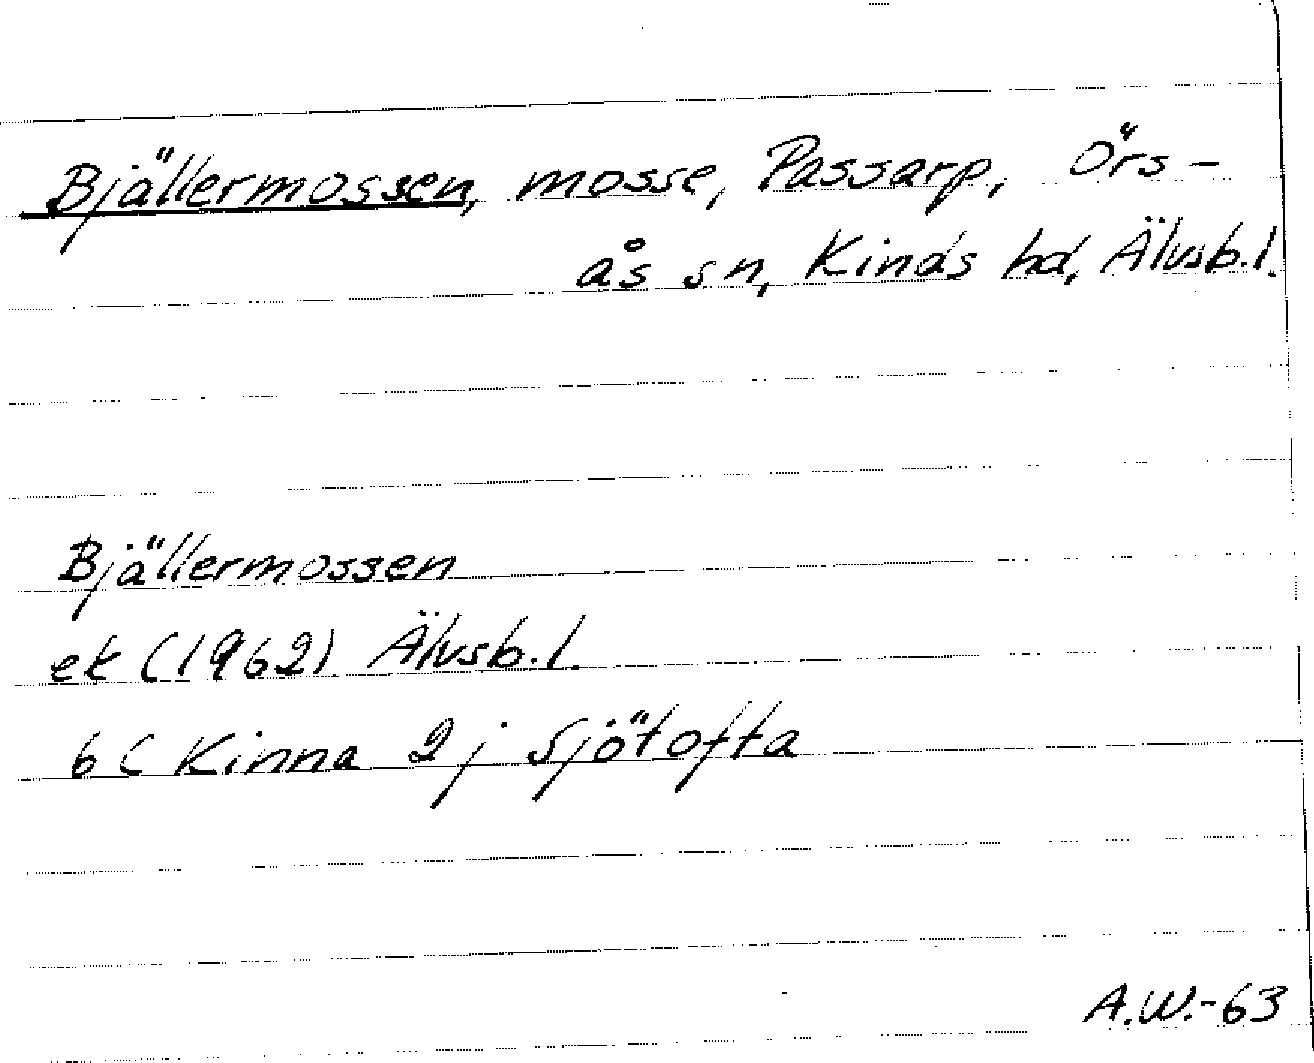 Bjällermossen, mosse, Passarp, Örs-
ås sn, Kinds hd, Älvsb.l.
Bjällermossen
ek (1962) Älvsb.l.
6C Kinna 2j Sjötofta
A.W.-63